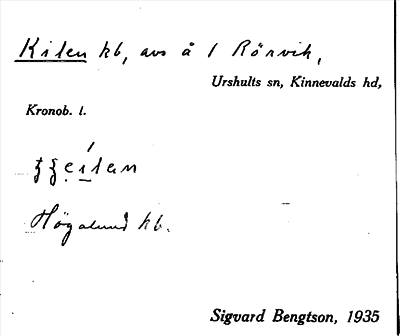 Kilen kb, avs å 1 Rörvik,
Urshults sn, Kinnevalds hd,
Kronob. l.
Högalund kb.
Sigvard Bengtson, 1935